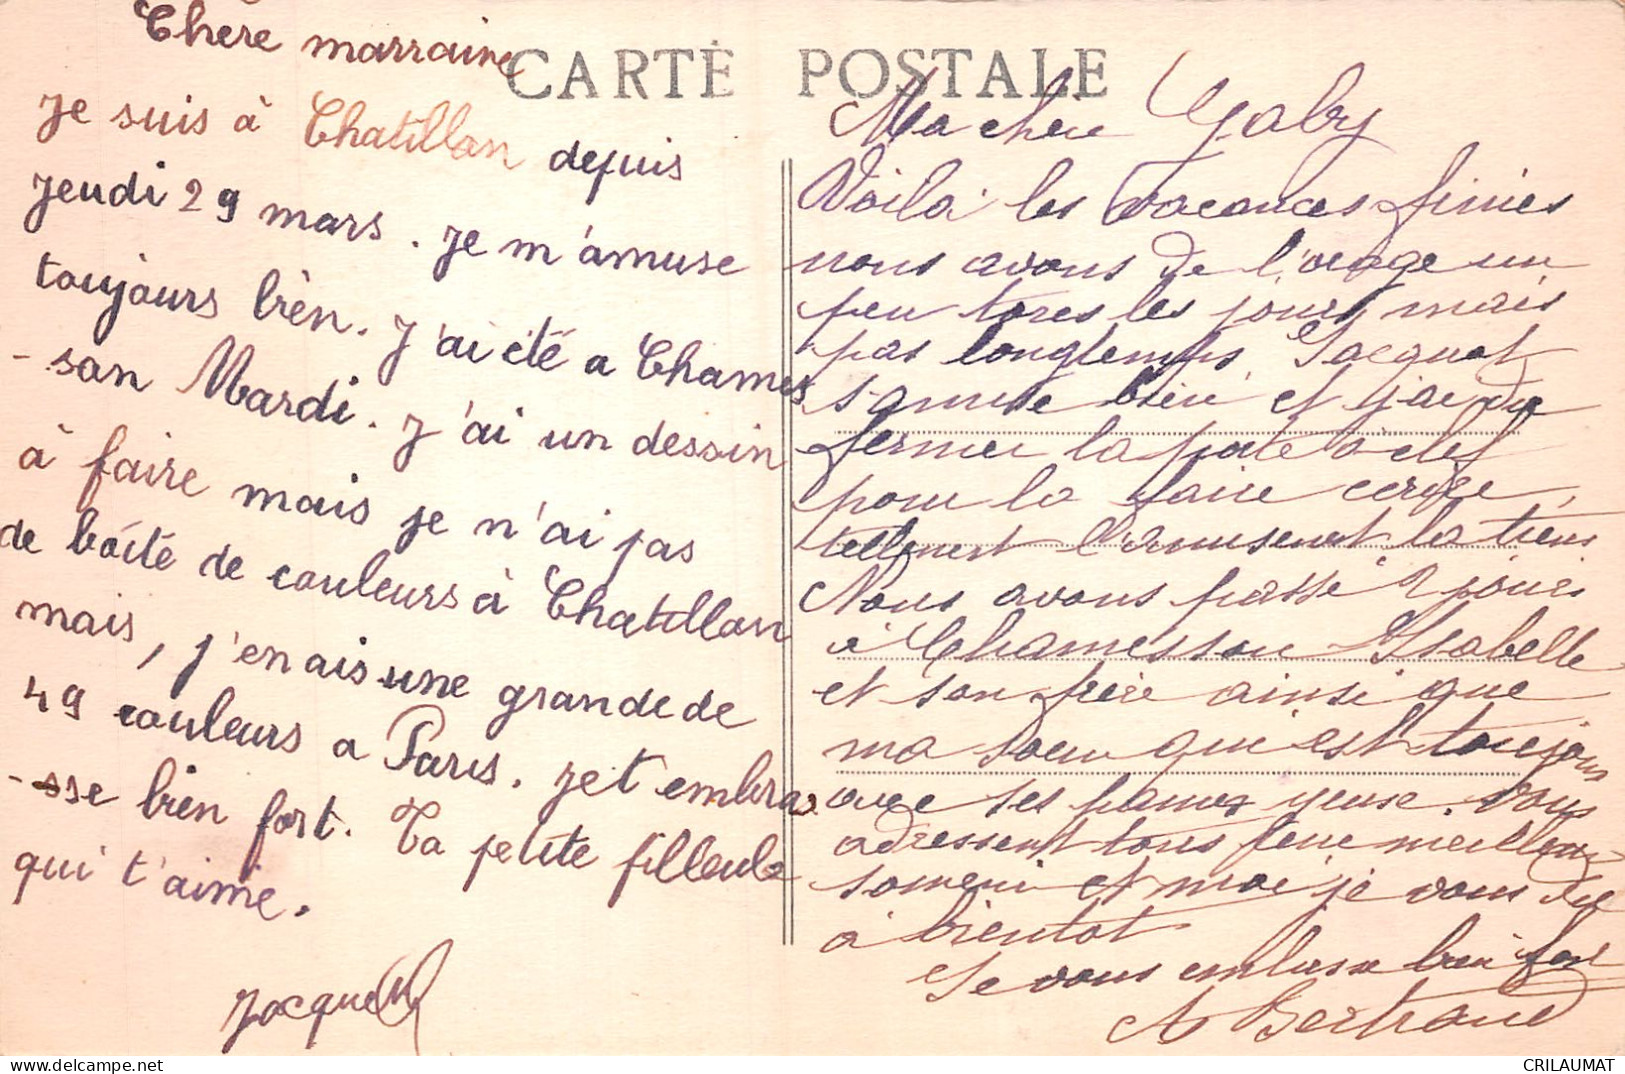 CARTE POSTALE
Chere marraine
Je suis à Chatillon depuis
jeudi 29 mars. je m'amuse
toujours bien. J'ai été a Chames
-son Mardi. J'ai un dessin
à faire mais je n'ai pas
de boité de couleurs à Chatillon
mais, j'en ais une grande de
49 couleurs a Paris. je t embra
-sse bien fort. Ta petite filleule
qui t'aime.
Ma chère Gaby
Voilà les vacances finies
nous avons de l'orage un
peu tous les jours mais
pas longtemps. Jacquot
s'amuse bien et j'ai dû
fermer la porte à clef
pour la faire
tellement
Nous avons passé 2 jours
à Chamesson Isabelle
et son frère ainsi que
ma soeur qui est toujours
avec ses yeux. Vous
adressent tous leur meilleur
souvenir et moi je vous dis
à bientôt
Je vous embrasse bien fort
A Bertrand
CRILAUMAT